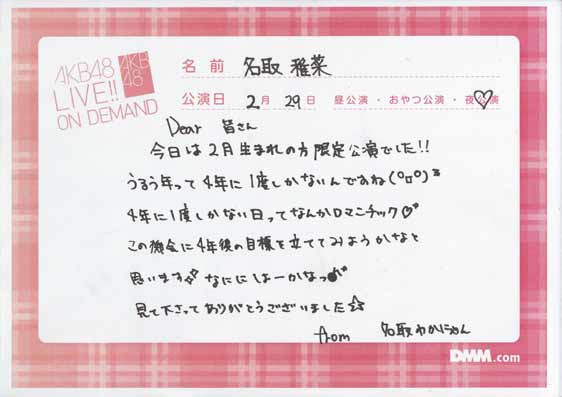 AKB48
LIVE!!
ON DEMAND
AKB
48
名前 名取 稚菜
公演日 2月 29日 昼公演・おやつ公演・夜公演
Dear 皆さん
今日は2月生まれの方限定公演でした!!
うるう年って4年に1度しかないんですね(°ロ°)
4年に1度しかない日ってなんかロマンチック♡
この機会に4年後の目標を立ててみようかなと
思います なににしよーかなっ
見て下さってありがとうございました☆
from 名取わかにゃん
DMM.com